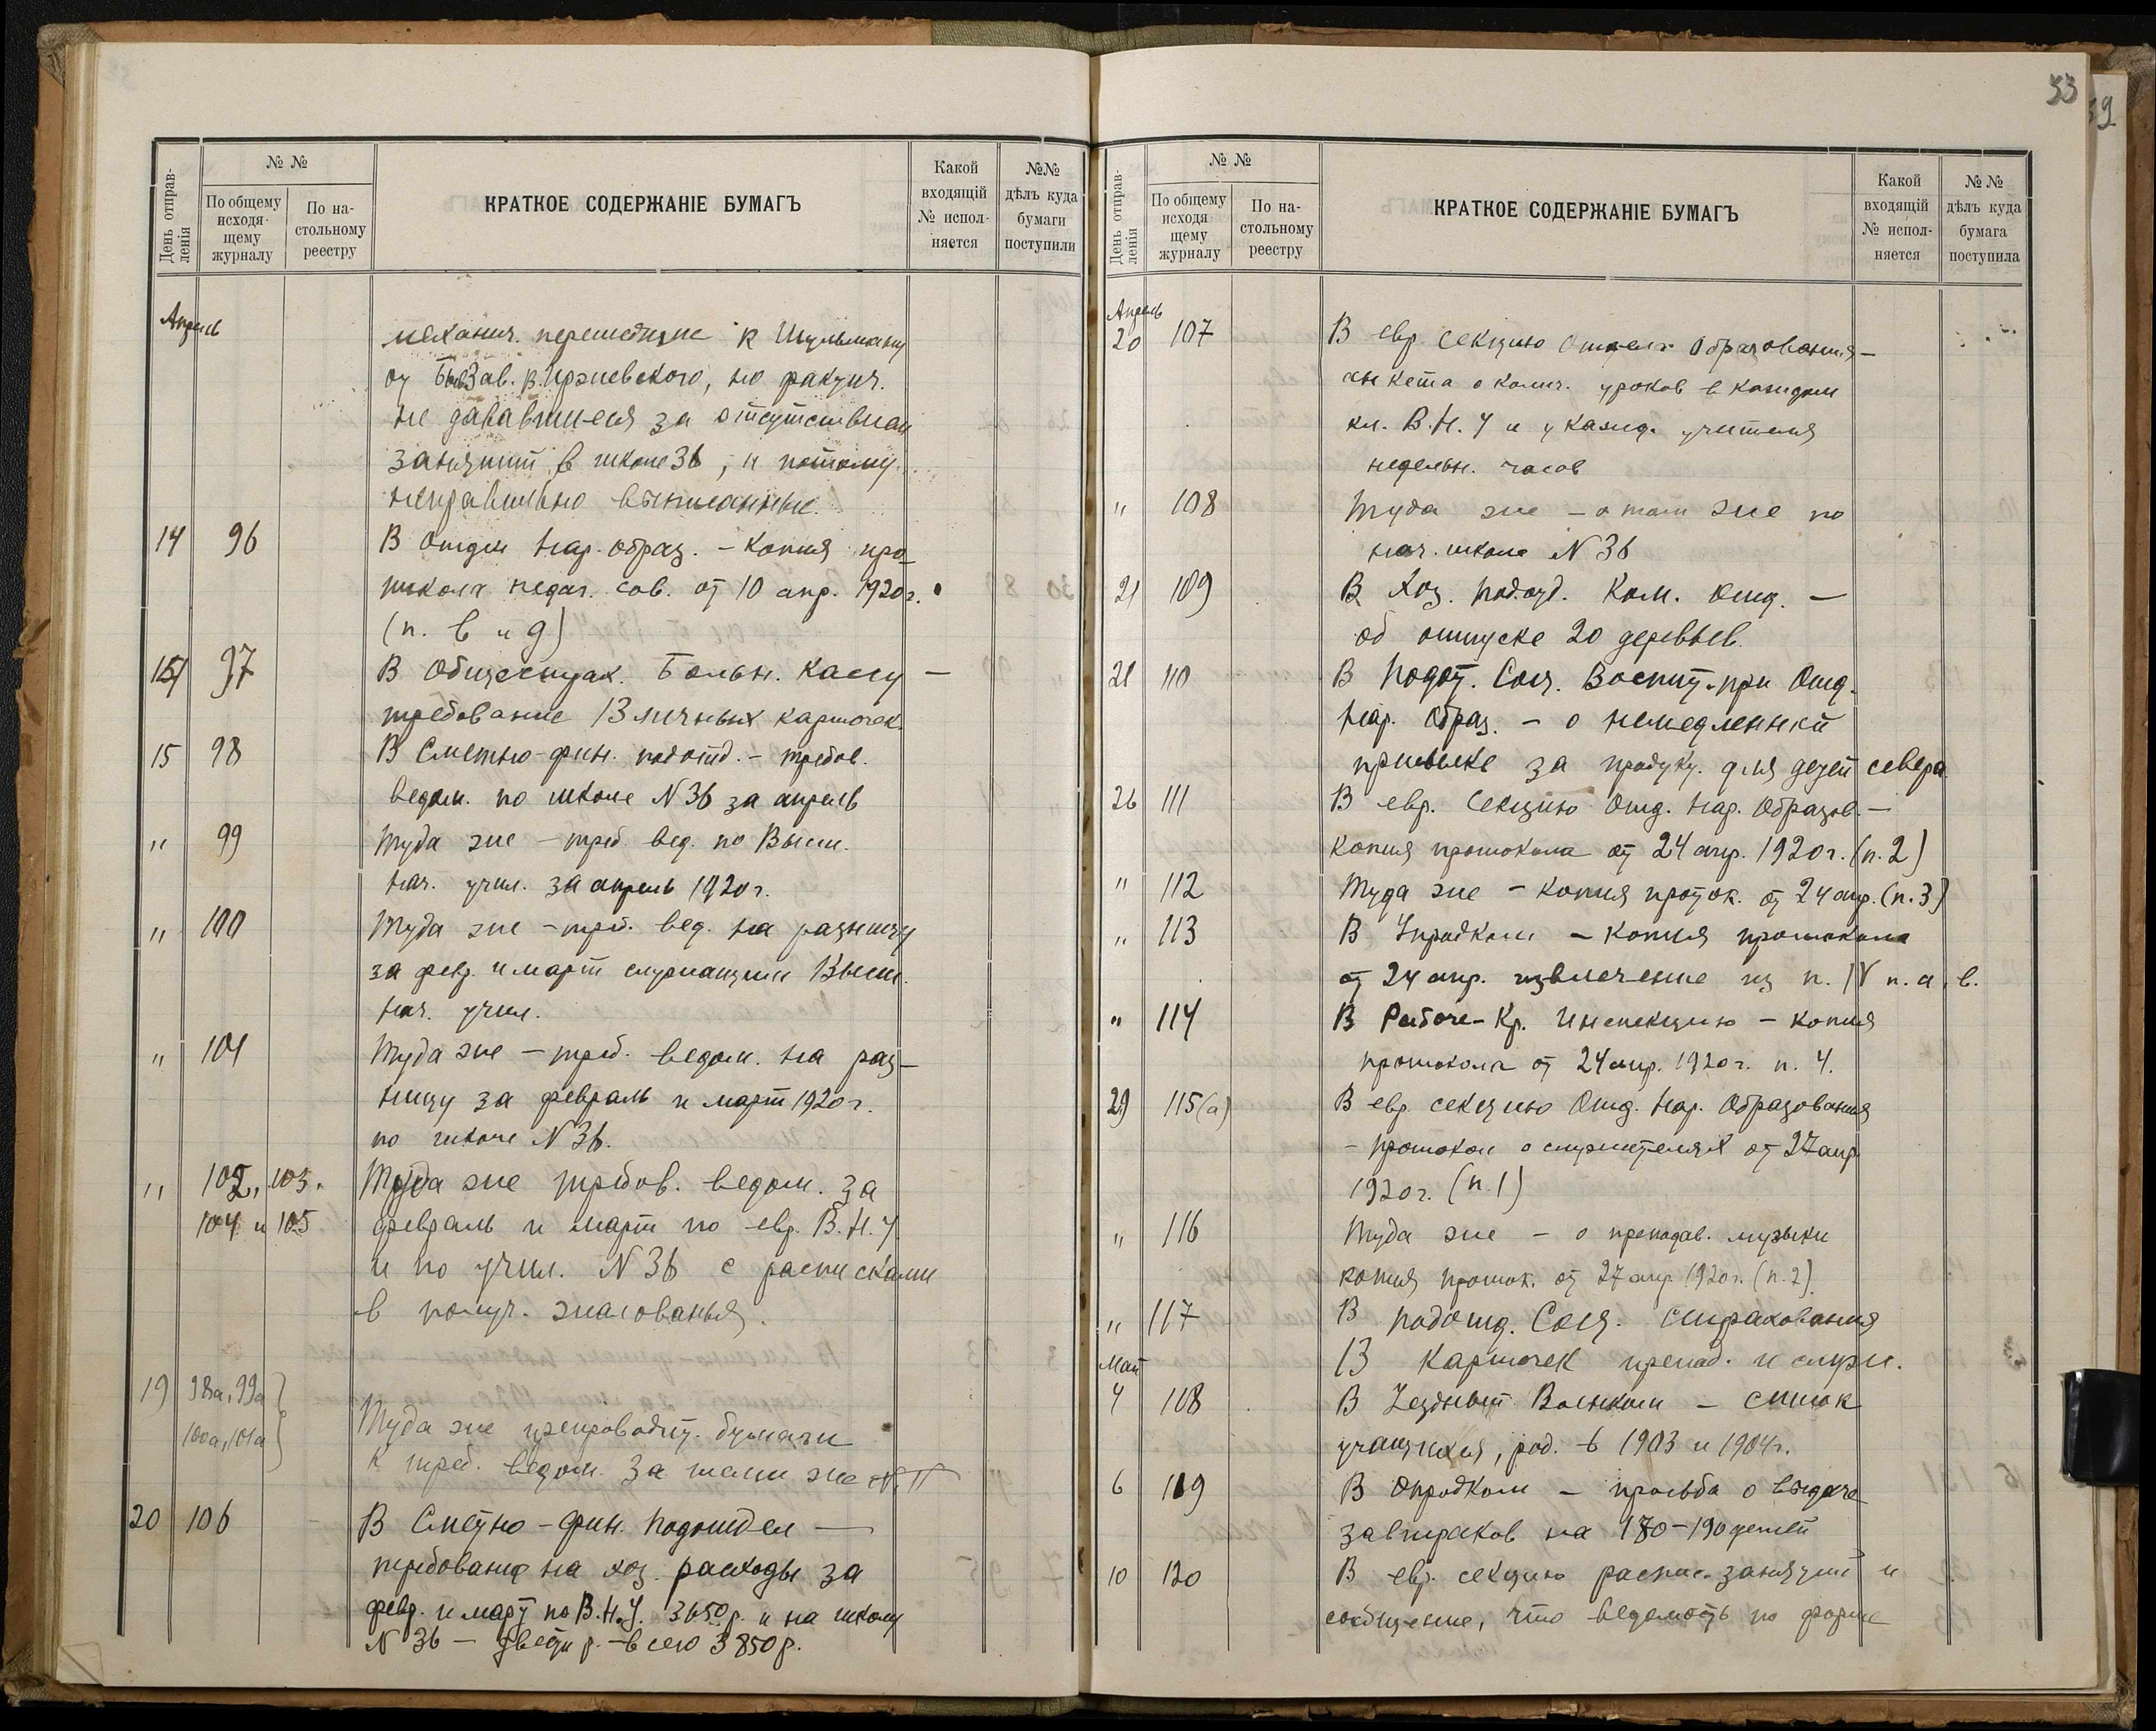 33
39
День отправ-
ленія
№ №
По общему
исходя-
щему
журналу
По на-
стольному
реестру
КРАТКОЕ СОДЕРЖАНІЕ БУМАГЪ
Какой
входящій
№ испол-
няется
№№
дѣлъ куда
бумаги
поступили
Апрель
механич. перешедшие к Шульману
от быв. Зав. В. , но фактич.
не дававшиеся за отсутствием
занятий в школе 36, и потому
неправильно выписанные.
14 96 В Отдел Нар. образ. – копия про-
токола педаг. сов. от 10 апр. 1920 г.
(п. в и д)
15 97 В Общегородск. Больн. Кассу –
требование 13 личных карточек.
15 98 В Сметно-фин. подотд. – требов.
ведом. по школе N 36 за апрель
" 99 Туда же – треб. вед. по Высш.
нач. учил. за апрель 1920 г.
" 100 Туда же – треб. вед. на разницу
за февр. и март служащим Высш.
нач. учил.
" 101 Туда же – треб. ведом. на раз-
ницу за февраль и март 1920 г.
по школе N 36.
" 102, 103. Туда же требов. ведом. за
104 и 105 февраль и март по евр. В. Н. У.
и по учил. N 36 с расписками
в получ. жалованья.
19 98а, 99а
100а, 101а
Туда же препроводит. бумаги
к треб. ведом. за теми же N.N
20 106 В Сметно-Фин. Подотдел –
требование на хоз. расходы за
февр. и март по В. Н. У. 3650 р. и на школу
N 36 – двести р. – всего 3850 р.
День отправ-
ленія
№ №
По общему
исходя
щему
журналу
По на-
стольному
реестру
КРАТКОЕ СОДЕРЖАНІЕ БУМАГЪ
Какой
входящій
№ испол-
няется
№ №
дѣлъ куда
бумага
поступила
Апрель
20 107 В евр. секцию Отдела Образования –
анкета о колич. уроков в каждом
кл. В. Н. У и у кажд. учителя
недельн. часов
" 108 Туда же – о том же по
нач. школе N 36
21 109 В Хоз. подотд. Ком. Отд. –
об отпуске 20 деревьев.
21 110 В Подот. Соц. Воспит. при Отд.
Нар. Образ. – о немедленной
присылке за продукт. для детей севера
26 111 В евр. Секцию Отд. Нар. Образов. –
копия протокола от 24 апр. 1920 г. (п. 2)
" 112 Туда же – копия проток. от 24 апр. (п. 3)
" 113 В Упродком – копия протокола
от 24 апр. извлечение из п. IV п. а, в.
" 114 В Рабоче-Кр. Инспекцию – копия
протокола от 24 апр. 1920 г. п. 4.
29 115 (а) В евр. секцию Отд. Нар. Образования
– протокол о служителях от 27 апр.
1920 г. (п. 1)
" 116 Туда же – о преподав. музыки
копия проток. от 27 апр. 1920 г. (п. 2).
" 117 В подотд. Соц. страхования
13 карточек препод. и служ.
Май
4 118 В Уездный Военком – список
учащихся, род. в 1903 и 1904 г.
6 119 В Опродком – просьба о выдаче
завтраков на 180–190 детей
10 120 В евр. секцию распис. занятий и
сообщение, что ведомость по форме